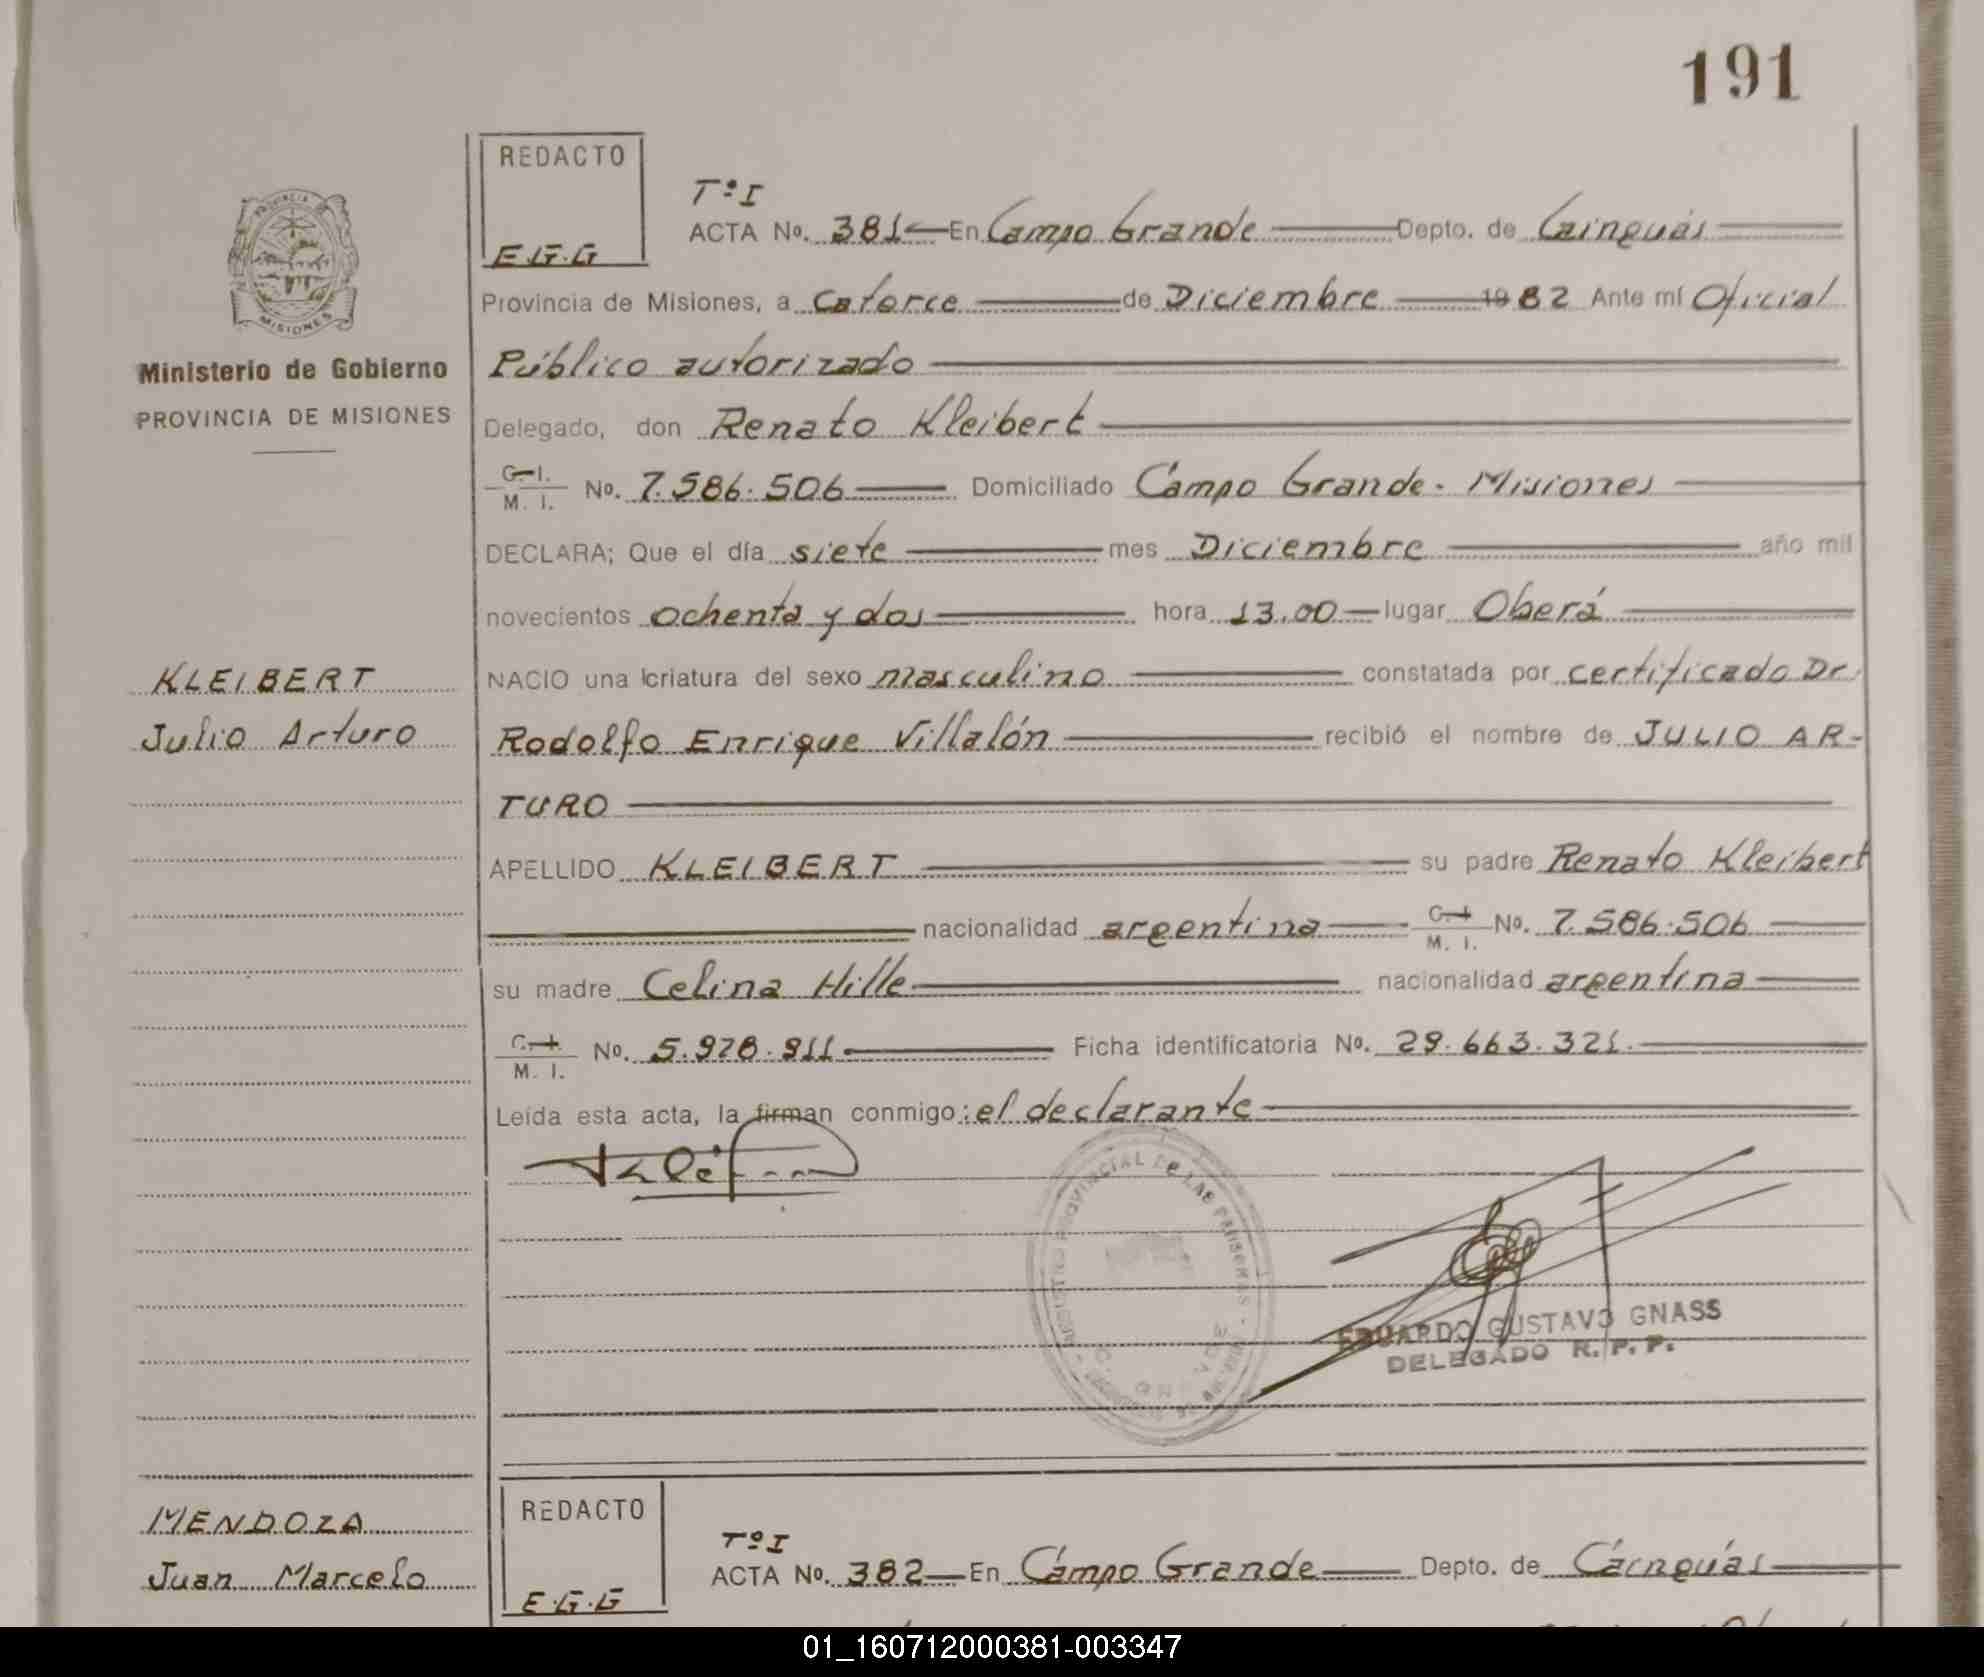 191
REDACTO
E.G.G
PROVINCIA DE
MISIONES
Ministerio de Gobierno
PROVINCIA DE MISIONES
Tº I
ACTA No. 381 En Campo Grande Depto. de Cainguás
Provincia de Misiones, a Catorce de Diciembre 1982 Ante mí Oficial
Público autorizado
Delegado, don Renato Kleibert
C. I.
M. I. No. 7.586.506 Domiciliado Campo Grande - Misiones
DECLARA; Que el día siete mes Diciembre año mil
novecientos ochenta y dos hora 13,00 lugar Oberá
KLEIBERT
Julio Arturo
NACIO una criatura del sexo masculino constatada por certificado Dr.
Rodolfo Enrique Villalón recibió el nombre de JULIO AR-
TURO
APELLIDO KLEIBERT su padre Renato Kleibert
nacionalidad argentina C. I. M. I. No. 7.586.506
su madre Celina Hille nacionalidad argentina
C. I.
M. I. No. 5.928.911 Ficha identificatoria No. 29.663.321.
Leída esta acta, la firman conmigo: el declarante
REGISTRO PROVINCIAL DE LAS PERSONAS
EDUARDO GUSTAVO GNASS
DELEGADO R. P. P.
MENDOZA
Juan Marcelo
REDACTO
E.G.G
Tº I
ACTA No. 382 En Campo Grande Depto. de Cainguás
01_160712000381-003347